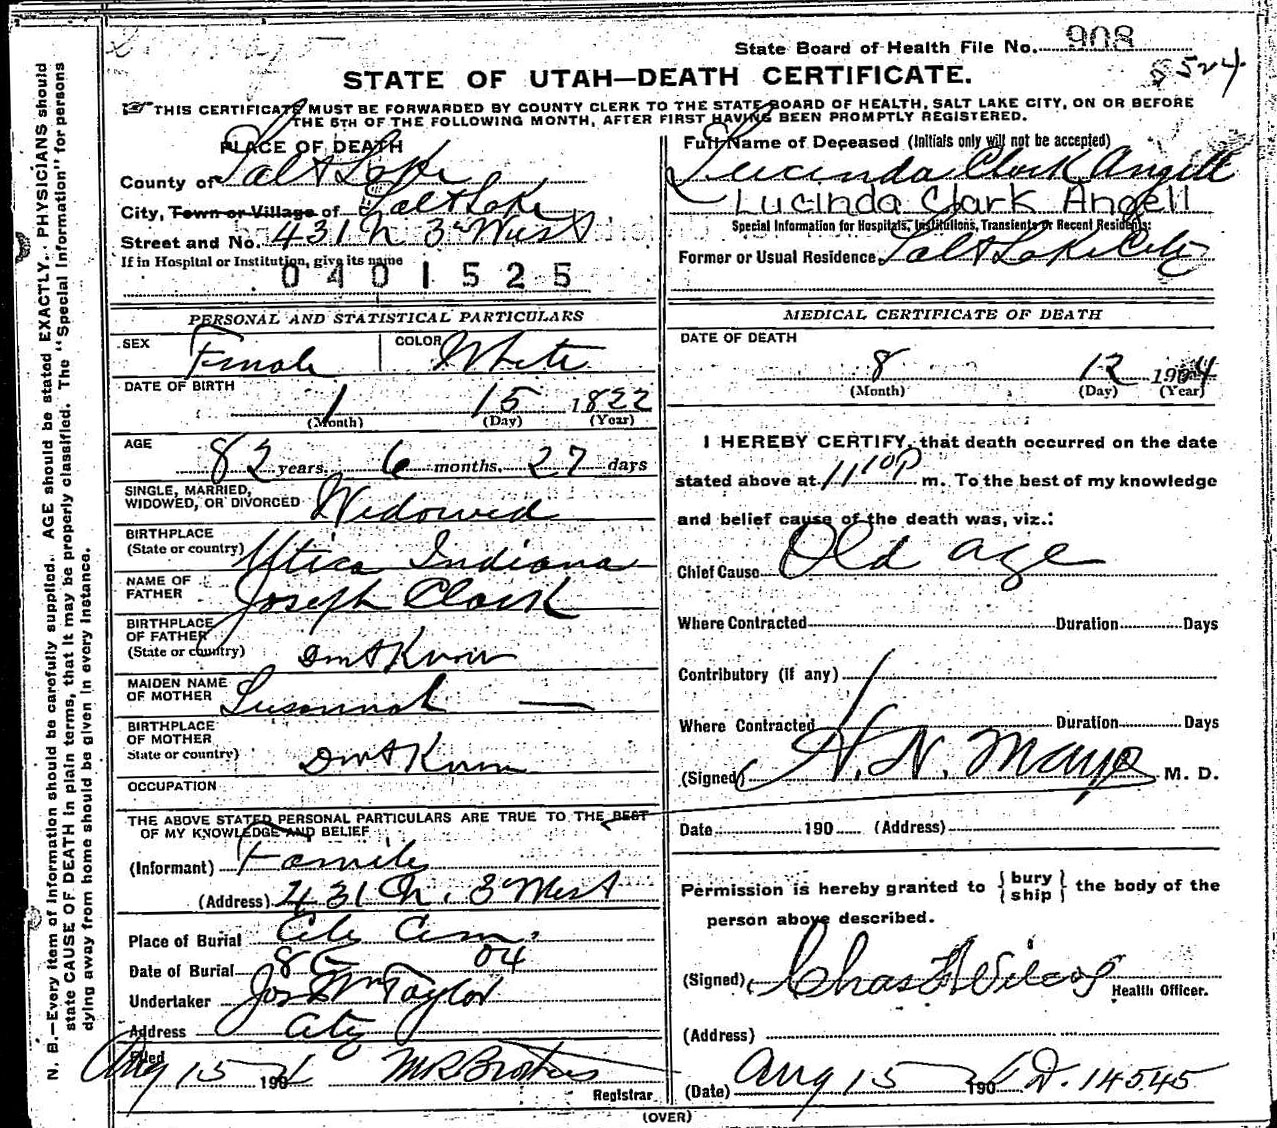 State Board of Health File No. 908
524
STATE OF UTAH—DEATH CERTIFICATE.
THIS CERTIFICATE MUST BE FORWARDED BY COUNTY CLERK TO THE STATE BOARD OF HEALTH, SALT LAKE CITY, ON OR BEFORE
THE 5TH OF THE FOLLOWING MONTH, AFTER FIRST HAVING BEEN PROMPTLY REGISTERED.
PLACE OF DEATH
County of Salt Lake
City, Town or Village of Salt Lake
Street and No. 431 N 3d West
If in Hospital or Institution, give its name
0401525
Full Name of Deceased (Initials only will not be accepted)
Lucinda Clark Angell
Lucinda Clark Angell
Special Information for Hospitals, Institutions, Transients or Recent Residents:
Former or Usual Residence Salt Lake City
PERSONAL AND STATISTICAL PARTICULARS
SEX Female COLOR White
DATE OF BIRTH
1 15 1822
(Month) (Day) (Year)
AGE
82 years, 6 months, 27 days
SINGLE, MARRIED,
WIDOWED, OR DIVORCED Widowed
BIRTHPLACE
(State or country) Utica Indiana
NAME OF
FATHER Joseph Clark
BIRTHPLACE
OF FATHER
(State or country) Dont Know
MAIDEN NAME
OF MOTHER Susannah —
BIRTHPLACE
OF MOTHER
State or country) Dont Know
OCCUPATION
THE ABOVE STATED PERSONAL PARTICULARS ARE TRUE TO THE BEST
OF MY KNOWLEDGE AND BELIEF
(Informant) Family
(Address) 431 N. 3d West
Place of Burial City Cem.
Date of Burial 8 15 04
Undertaker Jos Wm Taylor
Address City
Filed Aug 15 1904
Registrar
MEDICAL CERTIFICATE OF DEATH
DATE OF DEATH
8 12 1904
(Month) (Day) (Year)
I HEREBY CERTIFY, that death occurred on the date
stated above at 11 10 P m. To the best of my knowledge
and belief cause of the death was, viz.:
Chief Cause Old age
Where Contracted Duration Days
Contributory (if any)
Where Contracted Duration Days
(Signed) H. N. Mayo M. D.
Date 190 (Address)
Permission is hereby granted to {bury ship} the body of the
person above described.
(Signed) Chas F Wilcox Health Officer.
(Address)
(Date) Aug 15 1904 D. 14545
(OVER)
N. B.—Every item of information should be carefully supplied. AGE should be stated EXACTLY. PHYSICIANS should
state CAUSE OF DEATH in plain terms, that it may be properly classified. The "Special Information" for persons
dying away from home should be given in every instance.